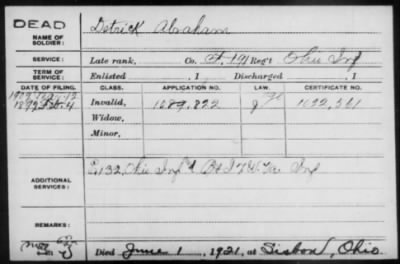 DEAD
NAME OF SOLDIER:
Detrick Abraham
SERVICE:
Late rank, Co. F, 191 Reg't Ohio Inf
TERM OF SERVICE:
Enlisted , 1 Discharged , 1
DATE OF FILING. CLASS. APPLICATION NO. LAW. CERTIFICATE NO.
Invalid, 1089,822
Widow,
Minor,
ADDITIONAL SERVICES:
132 Ohio Inf
Inf
REMARKS:
Died June 1, 1921, at Lisbon, Ohio